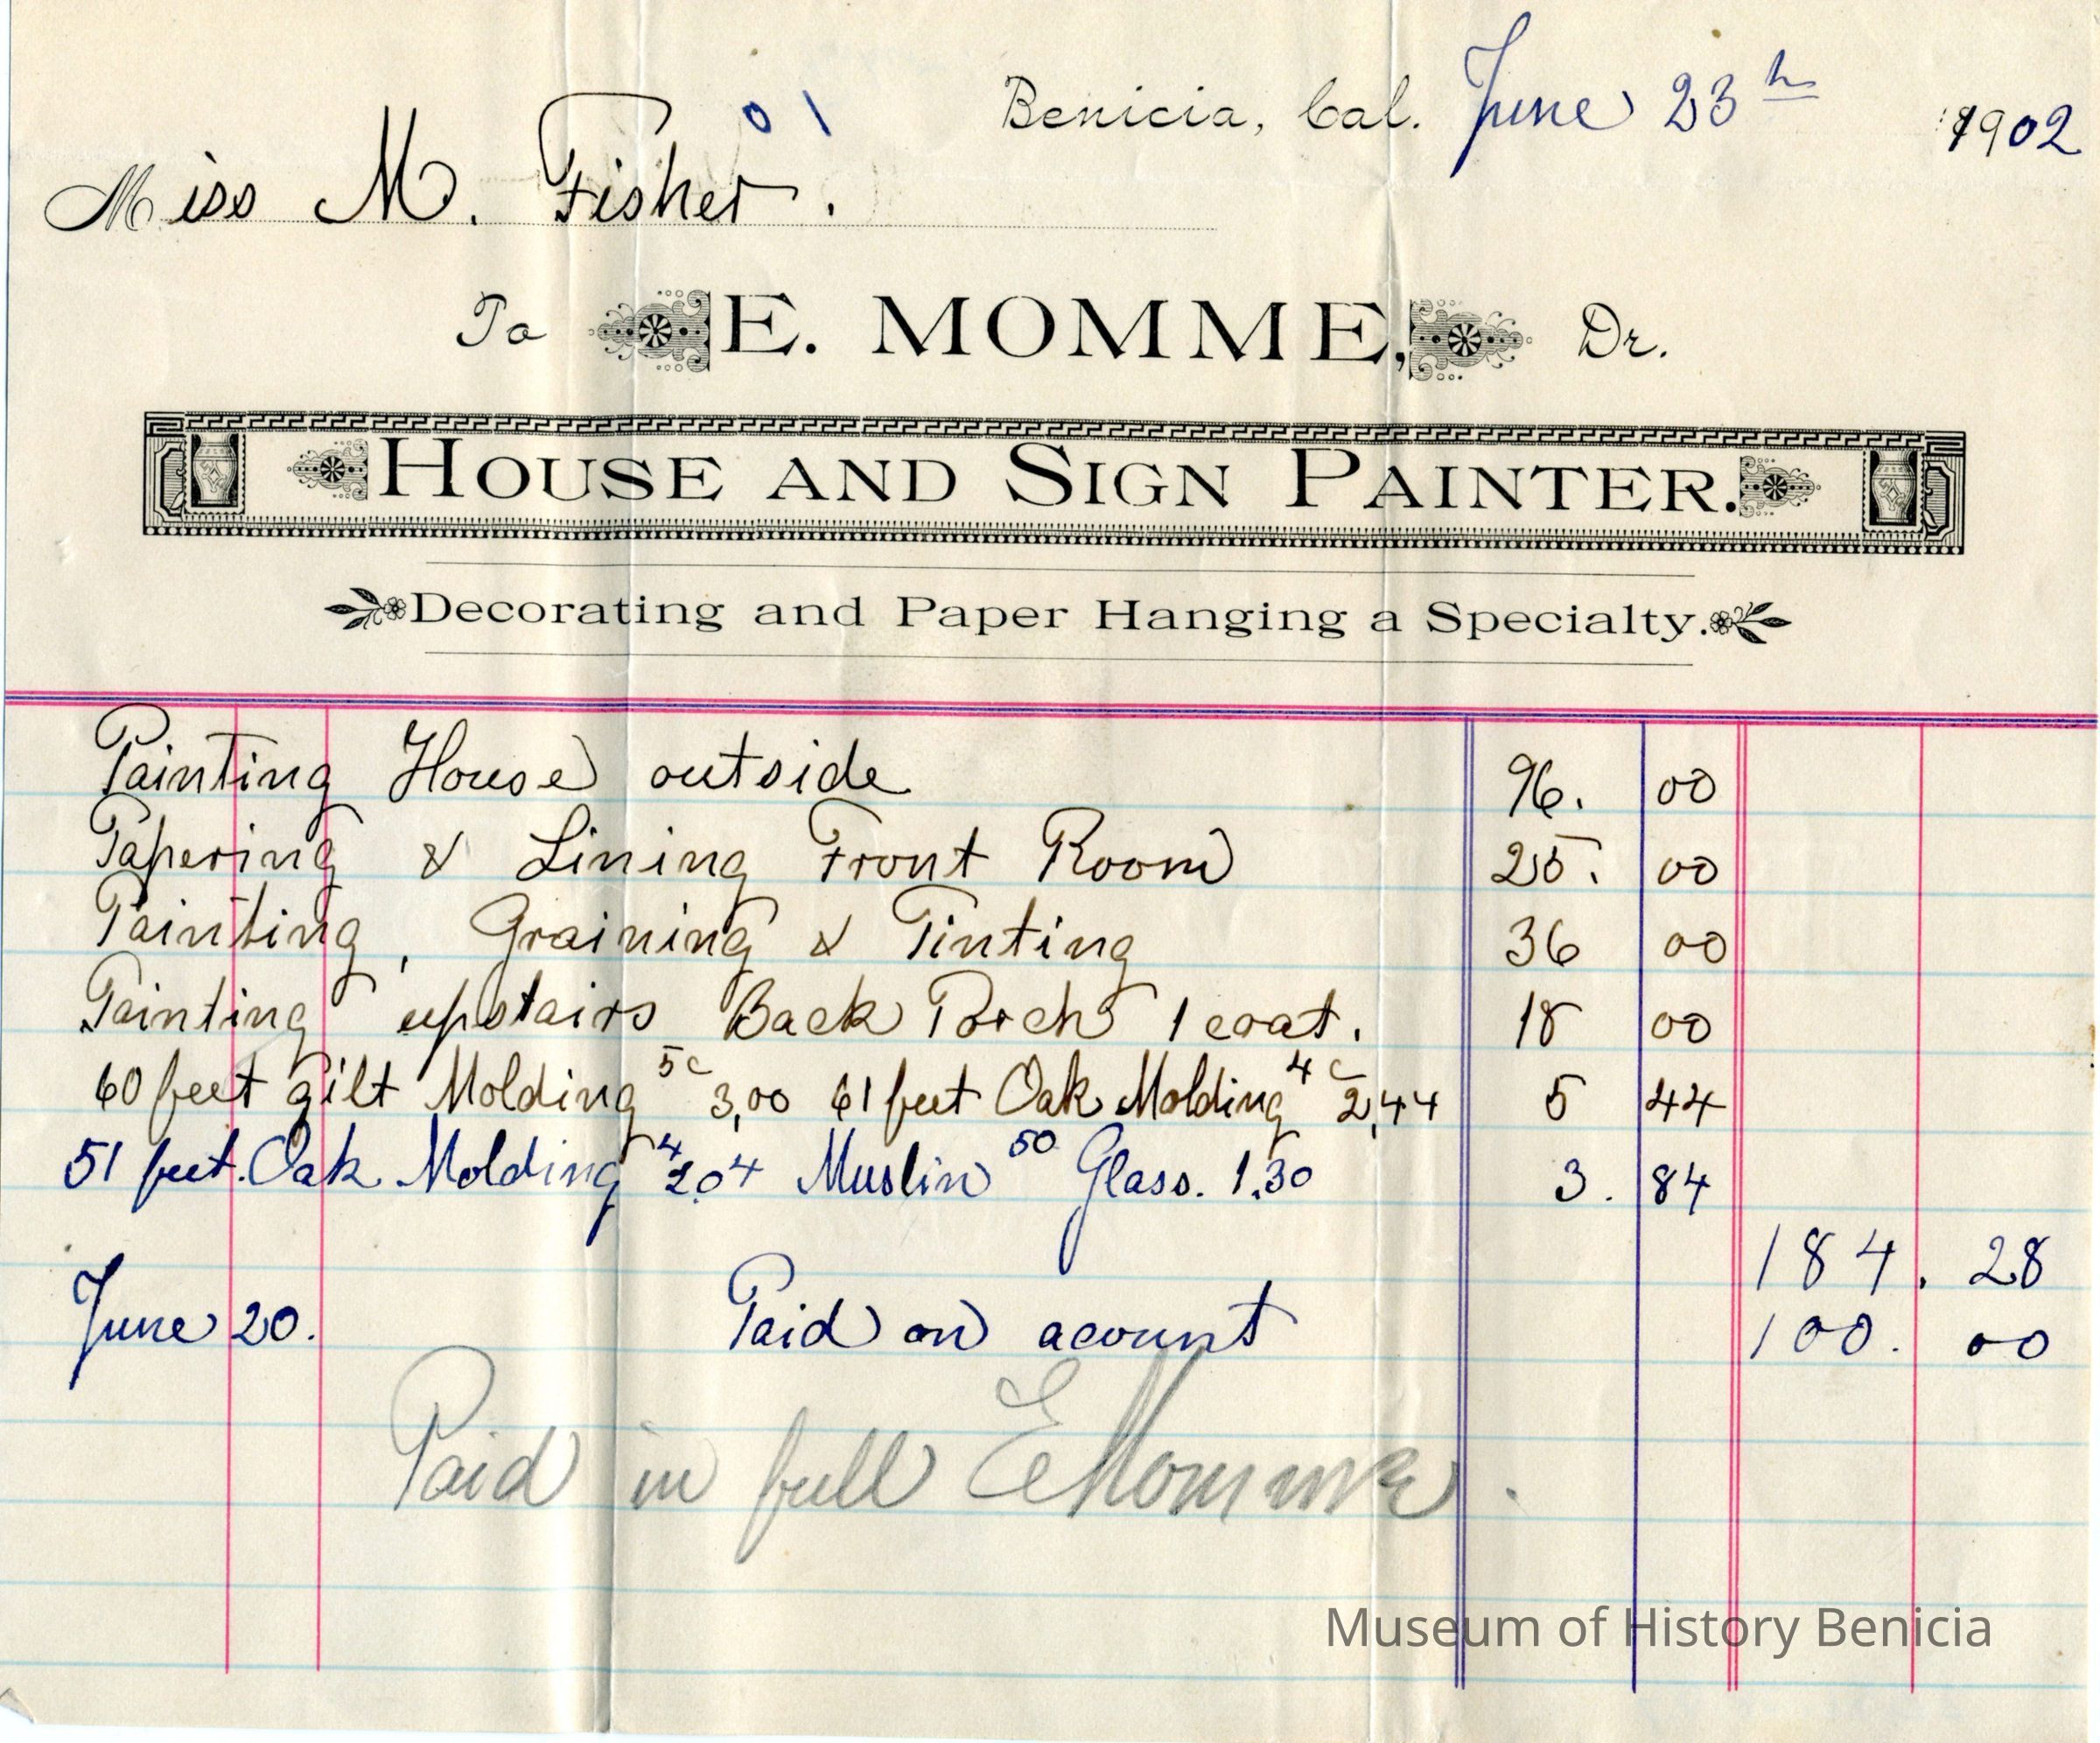 Benicia, Cal. June 23th 1902
01
Miss M. Fisher.
To E. MOMME, Dr.
HOUSE AND SIGN PAINTER.
Decorating and Paper Hanging a Specialty.
Painting House outside 96. 00
Papering & Lining Front Room 25. 00
Painting, Graining & Tinting 36 00
Painting upstairs Back Porch 1 coat. 18 00
60 feet gilt Molding 5c 3,00 61 feet Oak Molding 4c 2,44 5 44
51 feet. Oak Molding 4 2.04 Muslin 50 Glass. 1.30 3. 84
184. 28
June 20. Paid on acount 100. 00
Paid in full E Momme.
Museum of History Benicia